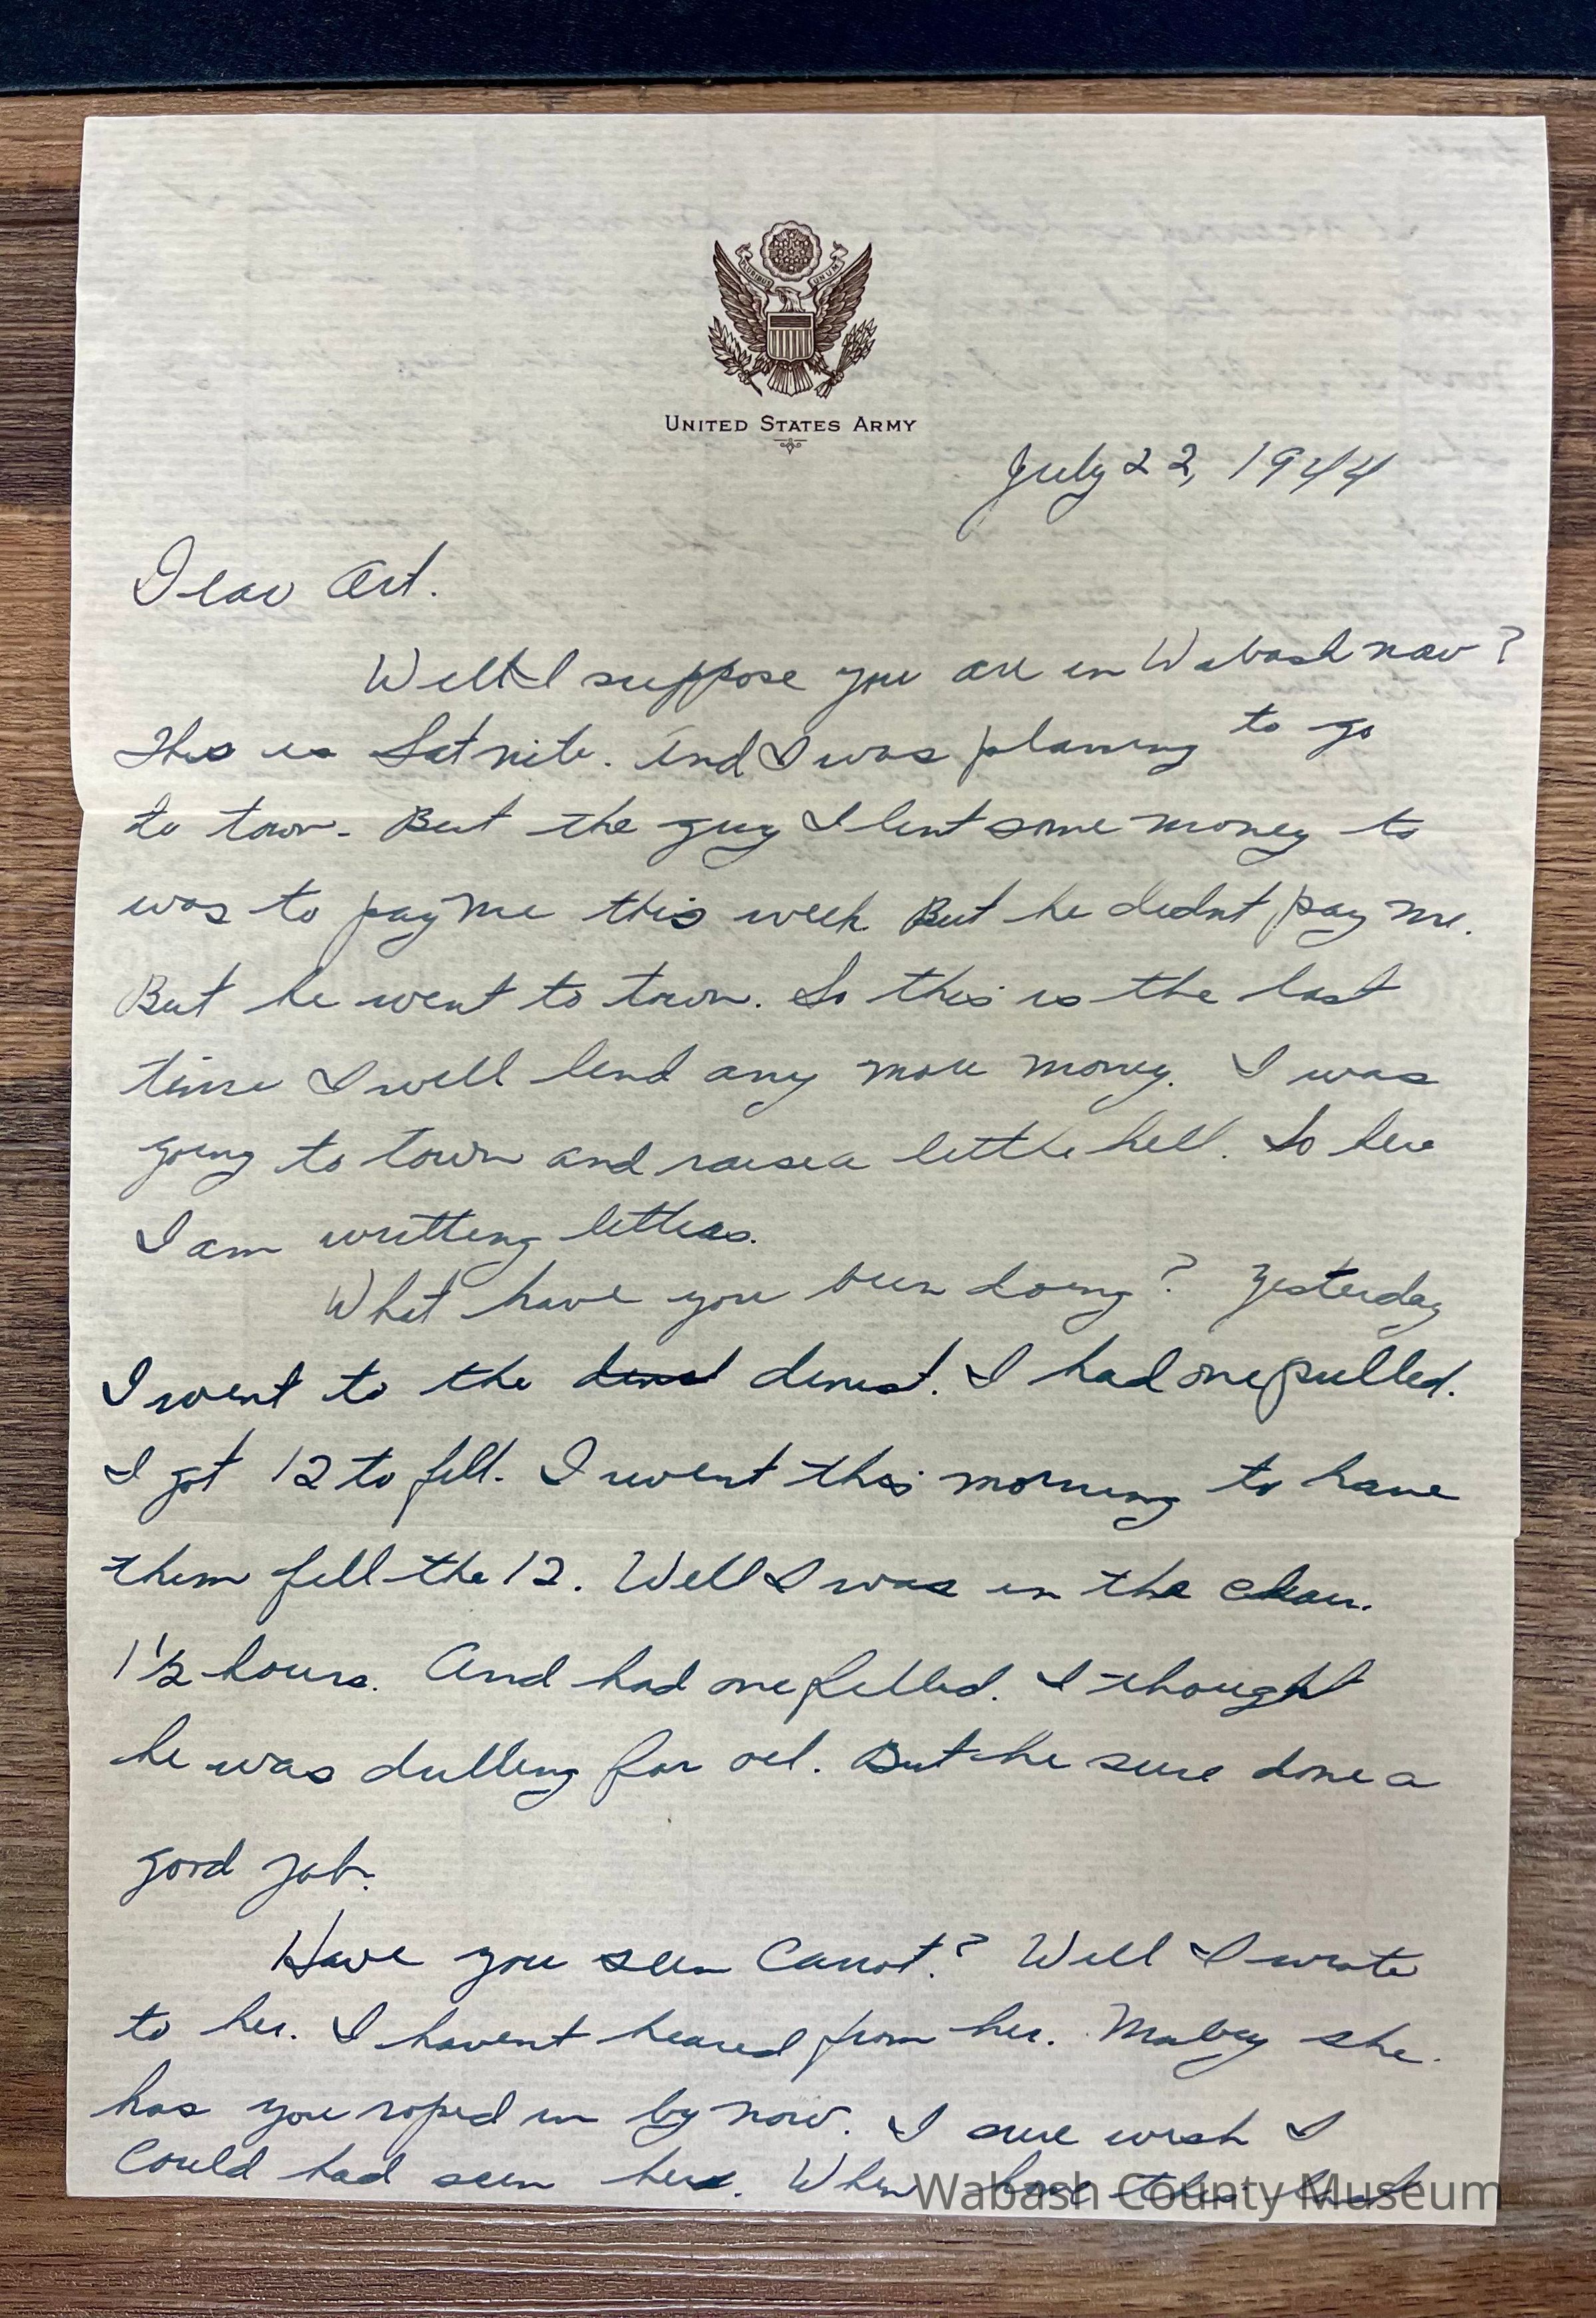 PLURIBUS UNUM
UNITED STATES ARMY
July 22, 1944
Dear Art.
Well I suppose you are in Wabash now?
This is Sat nite. And I was planing to go
to town. But the guy I lent some money to
was to pay me this week But he didnt pay me.
But he went to town. So this is the last
time I will lend any more money. I was
going to town and raise a little hell. So here
I am writting letters.
What have you been doing? Yesterday
I went to the dinst dinest. I had one pulled.
I got 12 to fill. I went this morning to have
them fill the 12. Well I was in the chair.
1 1/2 hours. And had one filled. I thought
he was drilling for oil. But he sure done a
good job.
Have you seen Carrot? Well I wrote
to her. I havent heared from her. Mabey she
has you roped in by now. I sure wish I
Could had seen her. When home this last
Wabash County Museum